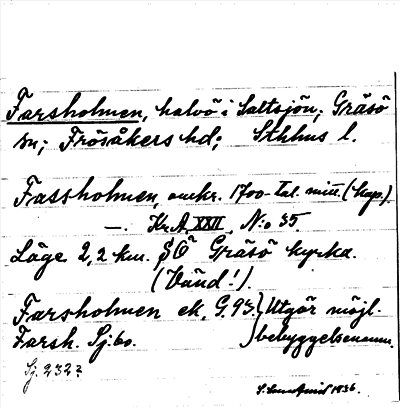 Farsholmen, halvö i Saltsjön; Gräsö
sn; Frösåkers hd; Sthlms l.
Fassholmen, omkr. 1700-tal. mitt. (kop.)
—. Kr.A. XXII, N:o 35.
Läge 2,2 km. SO Gräsö kyrka.
(Vänd!).
Farsholmen ek, G. 93. } Utgör möjl.
Farsh. Sj. 60. } bebyggelsenamn.
Sj. 232?
1936.